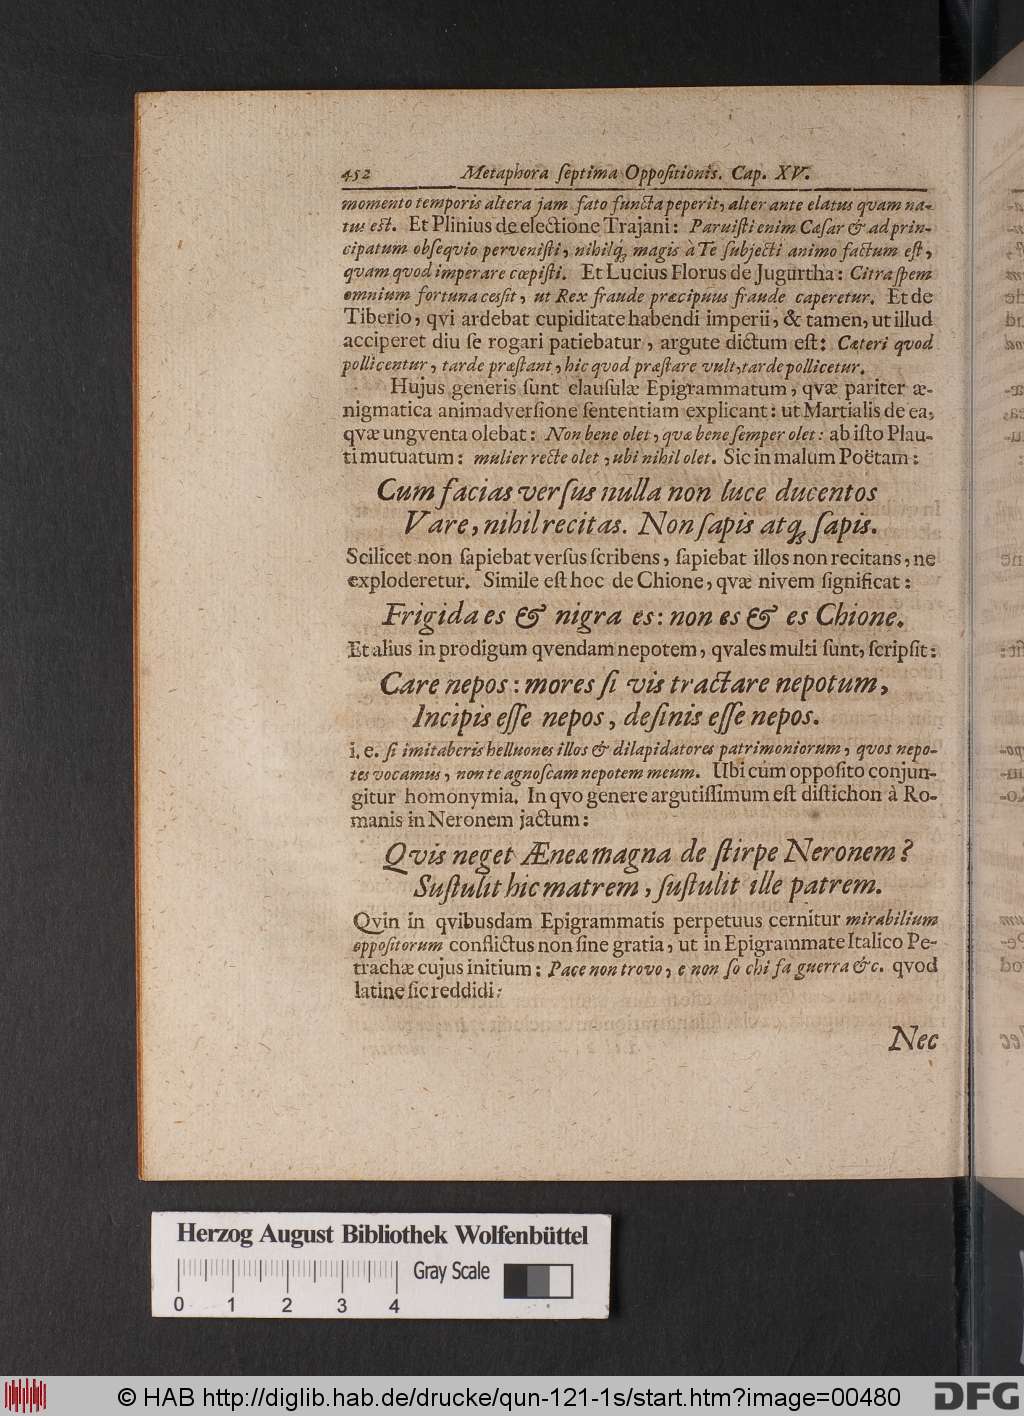 452 Metaphora ſeptima Oppoſitionis. Cap. XV.
momento temporis altera jam fato functa peperit, alter ante elatus quam na-
tus est. Et Plinius de electione Trajani: Paruiſti enim Cæſar & ad prin-
cipatum obſeqvio perveniſti, nihilq; magis à Te ſubjecti animo factum eſt,
quam quod imperare cœpiſti. Et Lucius Florus de Jugurtha: Citra ſpem
omnium fortuna cesſit, ut Rex fraude præcipuus fraude caperetur. Et de
Tiberio, qvi ardebat cupiditate habendi imperii, & tamen, ut illud
acciperet diu ſe rogari patiebatur, argute dictum eſt: Cæteri qvod
pollicentur, tarde præſtant, hic quod præſtare vult, tarde pollicetur.
Hujus generis ſunt clauſulæ Epigrammatum, qvæ pariter æ-
nigmatica animadverſione ſententiam explicant: ut Martialis de ea,
qvæ ungventa olebat: Non bene olet, quæ bene ſemper olet: ab iſto Plau-
ti mutuatum: mulier recte olet, ubi nihil olet. Sic in malum Poëtam:
Cum facias verſus nulla non luce ducentos
Vare, nihil recitas. Non ſapis atq; ſapis.
Scilicet non ſapiebat verſus ſcribens, ſapiebat illos non recitans, ne
exploderetur. Simile eſt hoc de Chione, qvæ nivem ſignificat:
Frigida es & nigra es: non es & es Chione.
Et alius in prodigum qvendam nepotem, qvales multi ſunt, ſcripſit:
Care nepos: mores ſi vis tractare nepotum,
Incipis eſſe nepos, deſinis eſſe nepos.
i. e. ſi imitaberis helluones illos & dilapidatores patrimoniorum, quos nepo-
tes vocamus, non te agnoſcam nepotem meum. Ubi cum oppoſito conjun-
gitur homonymia. In qvo genere argutiſſimum eſt diſtichon à Ro-
manis in Neronem jactum:
Qvis neget Æneæ magna de ſtirpe Neronem?
Suſtulit hic matrem, ſuſtulit ille patrem.
Qvin in qvibusdam Epigrammatis perpetuus cernitur mirabilium
oppoſitorum conflictus non ſine gratia, ut in Epigrammate Italico Pe-
trachæ cujus initium: Pace non trovo, e non ſo chi fa guerra &c. qvod
latine ſic reddidi:
Nec
Herzog August Bibliothek Wolfenbüttel
Gray Scale
0 1 2 3 4
© HAB http://diglib.hab.de/drucke/qun-121-1s/start.htm?image=00480
DFG